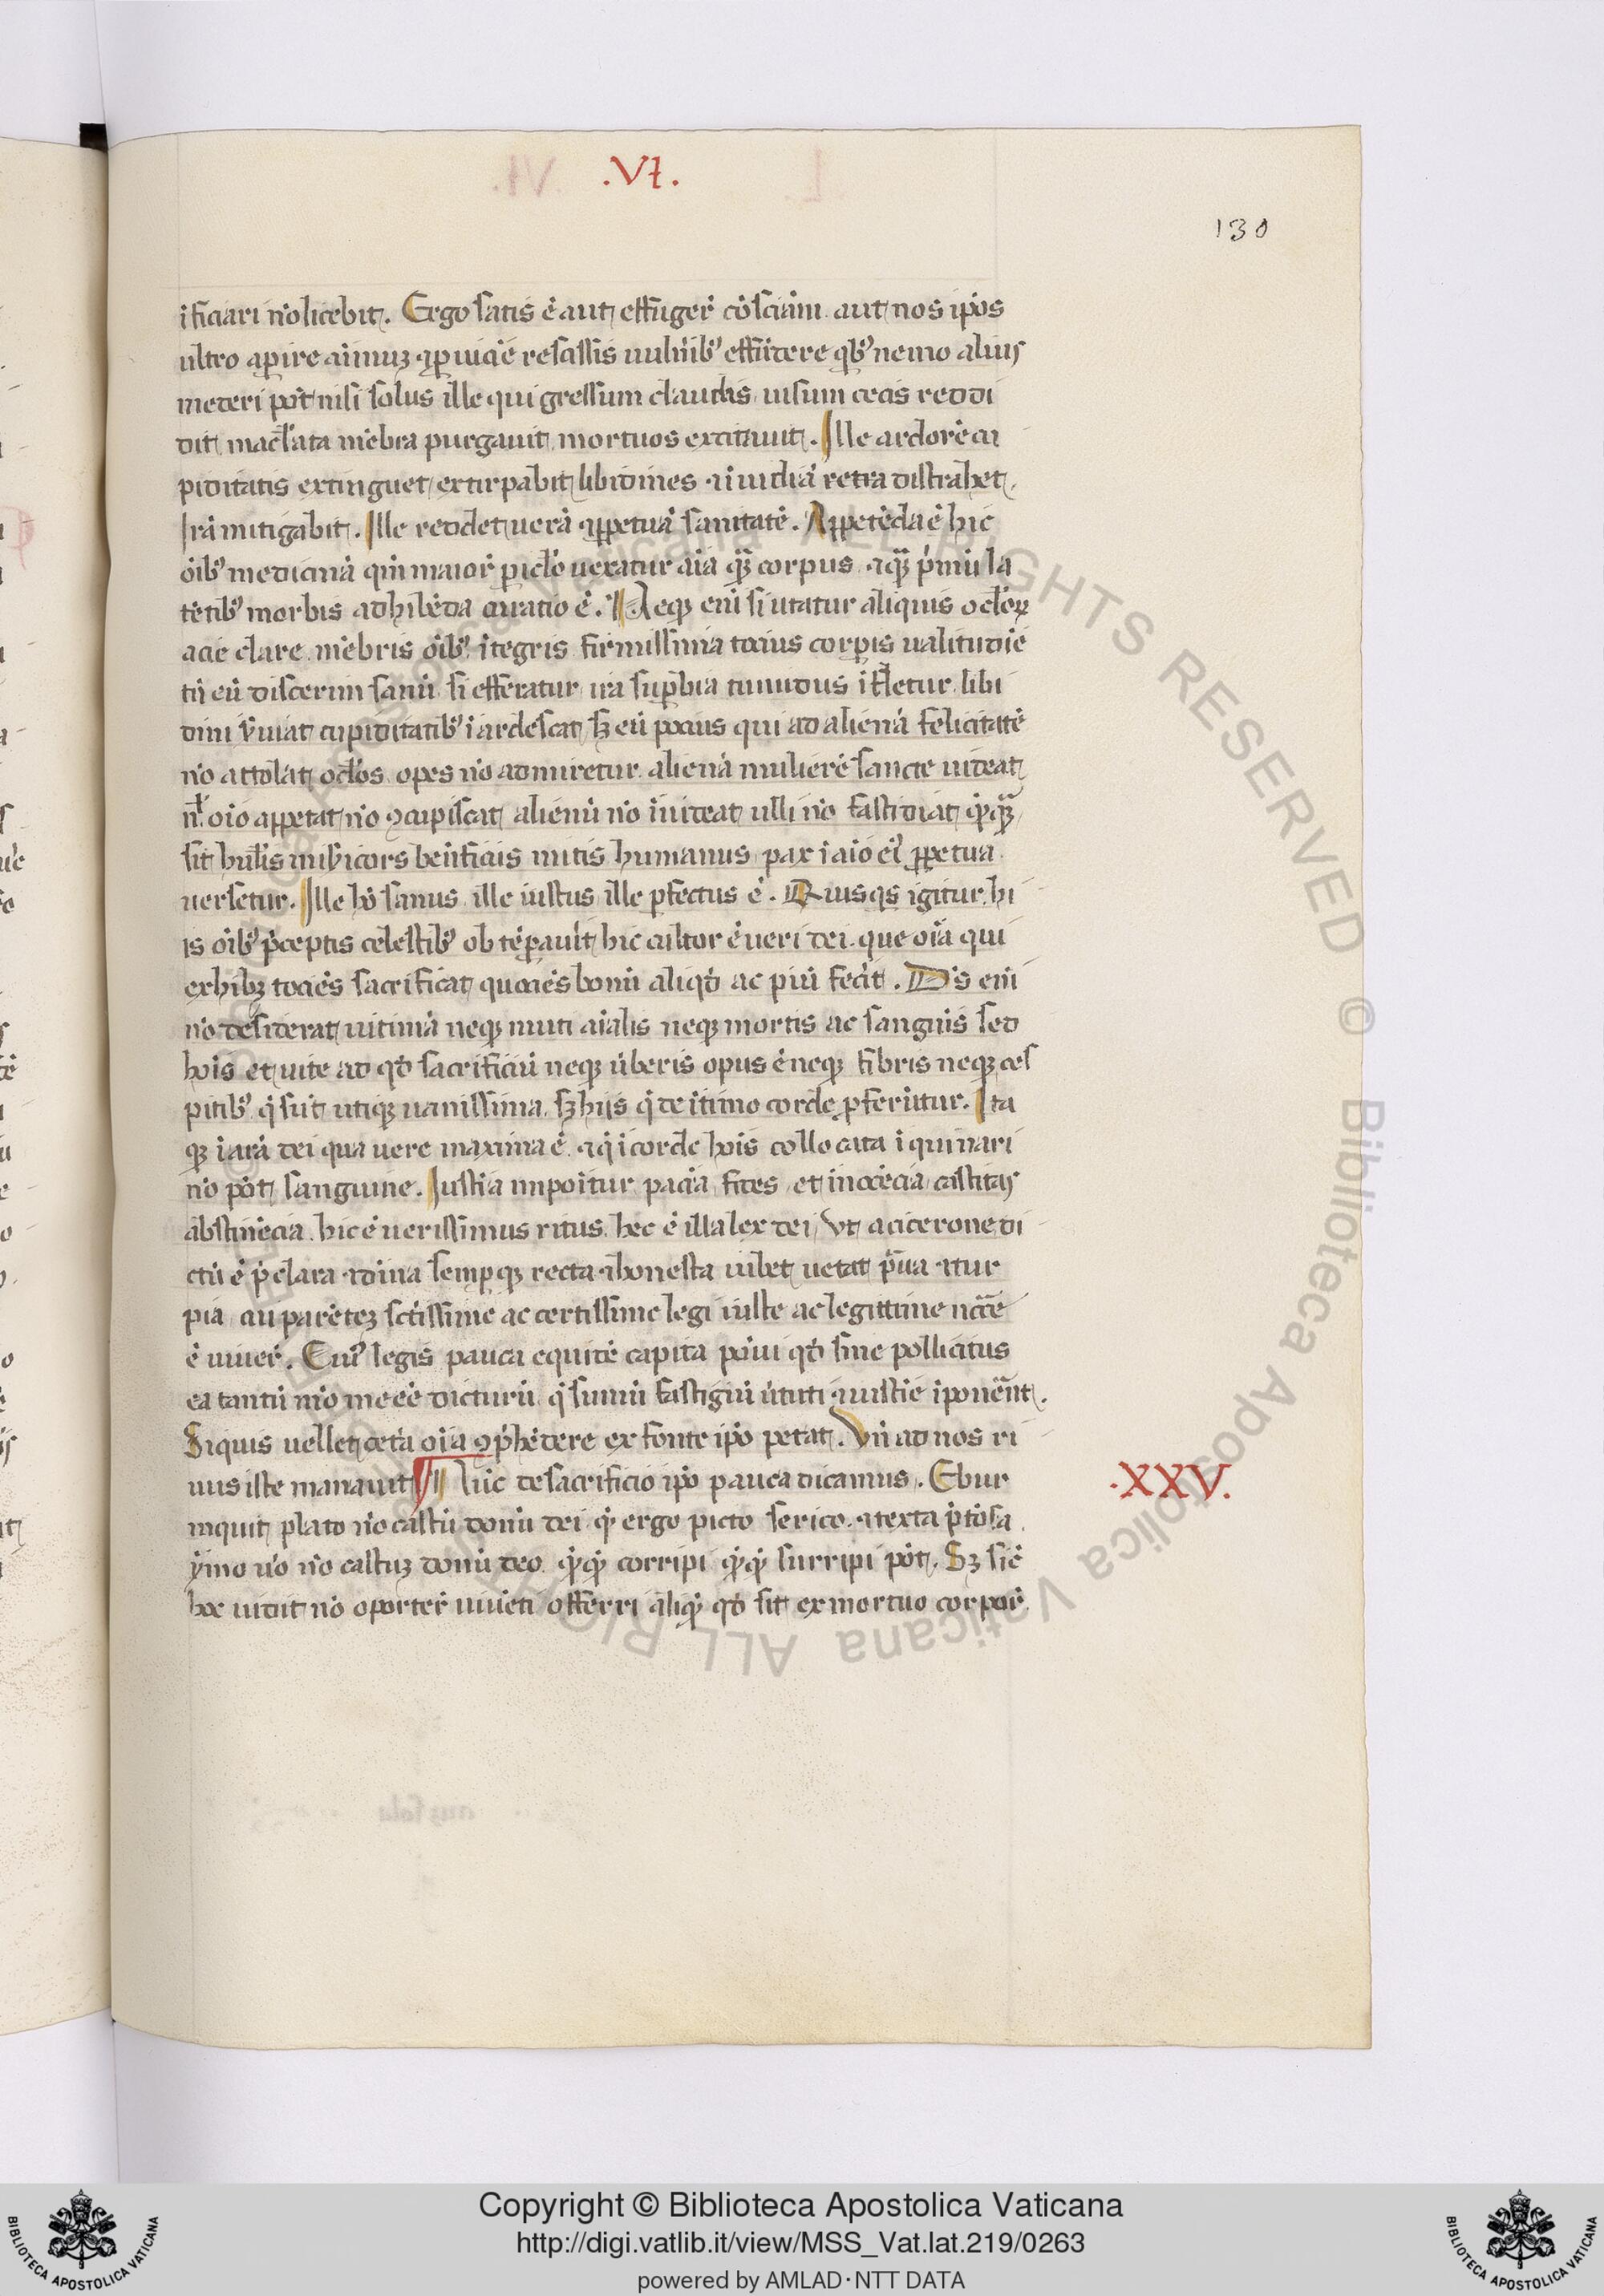 .VI.
130
ificiari nō licebit. Ergo satis ē aut effugeř cōsciām aut nos ip̄os
ultro aperire aīmuz ꝑ uiciē resassis uulnibꝰ effūdere qbꝰ nemo alius
mederi pōt nisi solus ille qui gressum claudis uisum cecis reddi
dit maclata mēbra purgauit mortuos excitauit. Ille ardorē cu
piditatis extinguet extirpabit libidines inuidiā retra distrahet
Irā mitigabit. Ille reddet uerā ꝑpetuā sanitatē. Appetēda ē hic
oībꝰ medicinā qm̄ maiorꝰ piclo uexatur aīa q̄ꝫ corpus q̄ꝫ pmū la
tētibꝰ morbis adhibēda curatio ē. ¶ Neqꝫ enī si utatur aliquis oclōꝝ
acie clare mēbris oībꝰ ītegris firmissima tocius corpis ualitudīe
tn̄ eū dixerim sanū si efferatur ira supbia tumidus īfletur libi
dini s̄uiat cupiditatibꝰ īardescat sꝫ eū pocius qui ad alienā felicitatē
nō attolat oclōs opes nō admiretur alienā mulierē sancte uideat
nl̄ oīo appetat nō ꝯcupiscat alienū nō īuideat ulli nō fastidiat q̄qꝫ
sit huīlis mībicors bēnficus mitis humanus pax ī aīo eiꝰ ꝑpetua
uersetur. Ille hō sanus ille iustus ille pfectus ē. Quisqs igitur hi
is oībꝰ p̄ceptis celestibꝰ ob tēpauīt hic cultor ē ueri dei que oīa qui
exhibꝫ tociēs sacrificat quociēs bonū aliqd̄ ac piū fecit. Ds̄ enī
nō desiderat uitimā neqꝫ muti aīalis neqꝫ mortis ac sanguīs sed
hoīs et uite ad qd̄ sacrificiū neqꝫ ūberis opus ē neqꝫ fibris neqꝫ ces
pitibꝰ q̄ sūt utiqꝫ uanissima sꝫ hijs q̄ de ītimo corde pferūtur. Ita
qꝫ ī arā dei qua uere maxima ē q̄ ī corde hoīs collocata īquinari
nō pōt sanguine. Iusticia impoītur pacīa fides et inocēcia castitas
abstinēcia hic ē uerissimus ritus hec ē illa lex dei Vt a cicerone di
ctū ē p̄clara diuina sempqꝫ recta honesta iubet uetat p̄ua tur
pia cui parētez sctīssime ac certissime legi iuste ac legittime nc̄ce
ē uiuer̄. Cuiꝰ legis pauca equidē capita pōiui qd̄ sine pollicitus
ea tantū mō me eē dicturū q̄ sumū fastigiū ūtuti iusticīe īponēnt.
Siquis uellet cetā oīa ꝯp̄hēdere ex fonte ip̄o petat. Vn̄ ad nos ri
uus iste manauit ¶ Nūc de sacrificio ip̄o pauca dicamus. Ebur
inquit plato nō castū donū dei q̄ ergo picto serico texta p̄tiosa
ymo uō nō castuz donū deo q̄q̄ corripi q̄q̄ surripi pōt. Sꝫ sic
hoc uidit nō oporteř uiuēti offerri aliqꝫ qd̄ sit ex mortuo corpoř
.XXV.
Copyright © Biblioteca Apostolica Vaticana
http://digi.vatlib.it/view/MSS_Vat.lat.219/0263
powered by AMLAD·NTT DATA